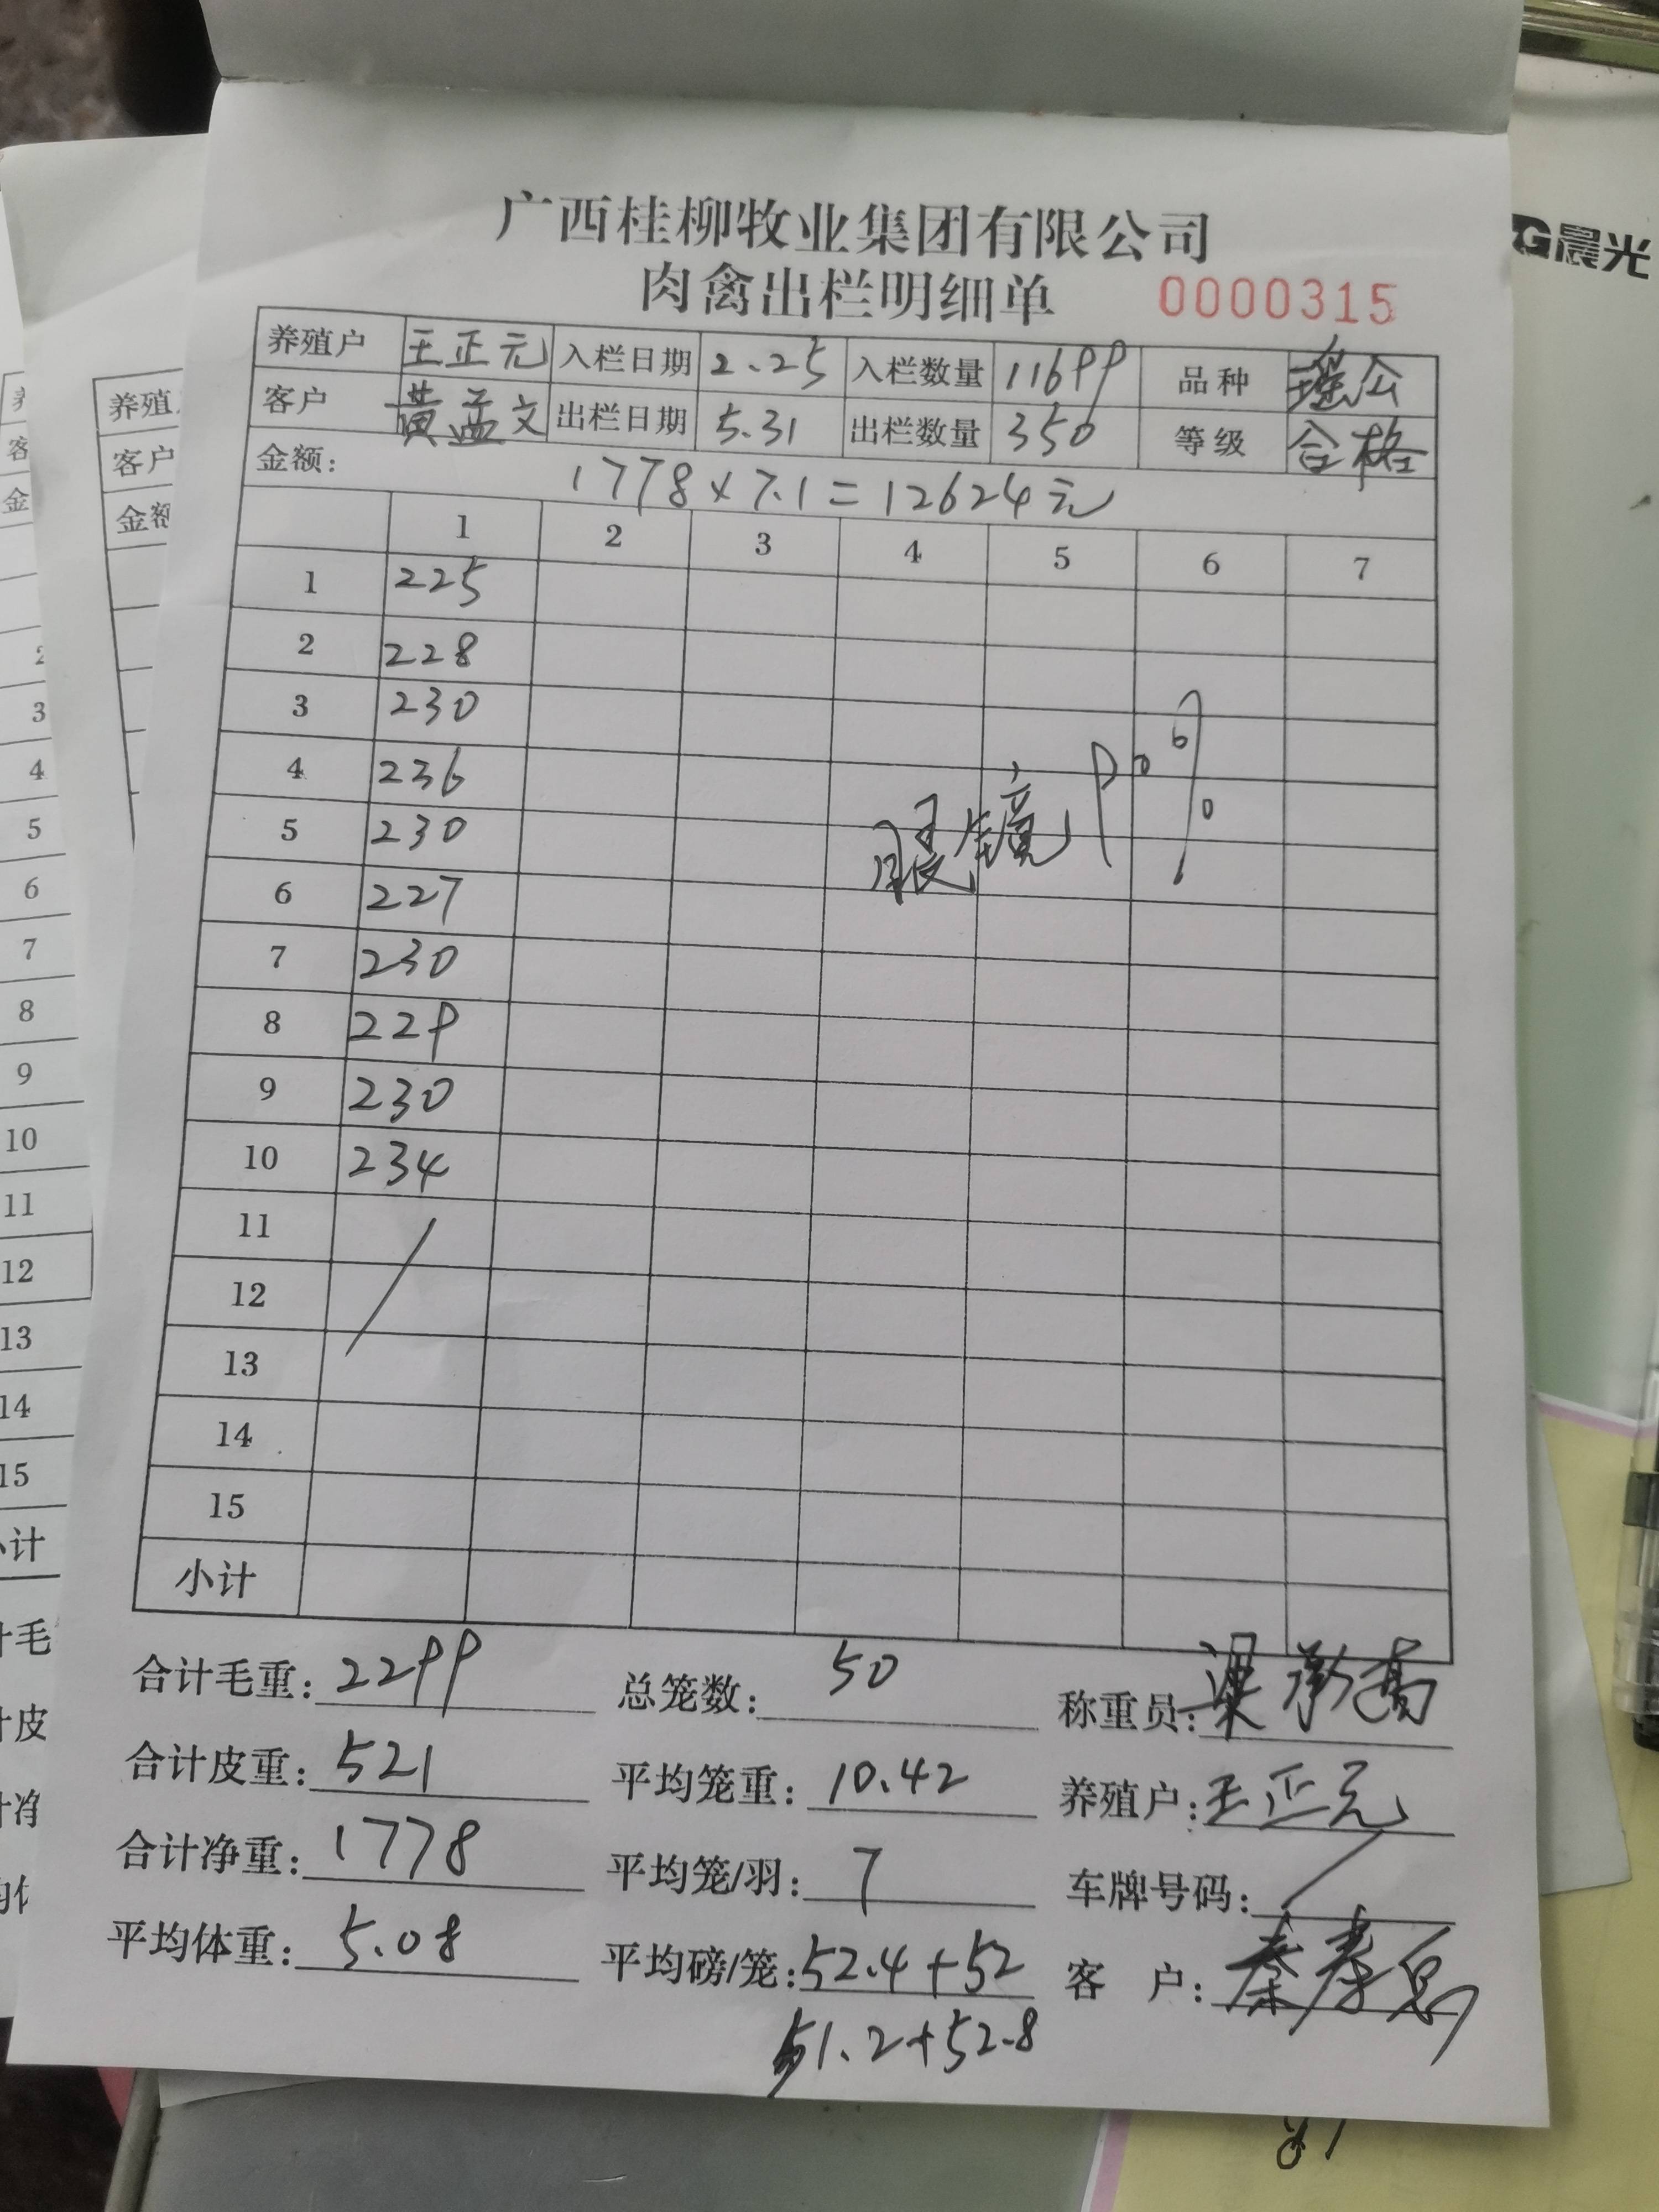 广西桂柳牧业集团有限公司
肉禽出栏明细单 0000315
养殖户 王正元 入栏日期 2.25 入栏数量 11699 品种 瑶公
客户 黄孟文 出栏日期 5.31 出栏数量 350 等级 合格
金额: 1778×7.1=12624元
1 2 3 4 5 6 7
1 225
2 228
3 230
4 236
5 230
6 227
7 230
8 229
9 230
10 234
11
12
13
14
15
小计
眼镜90%
合计毛重: 2299 总笼数: 50 称重员:
合计皮重: 521 平均笼重: 10.42 养殖户: 王正元
合计净重: 1778 平均笼/羽: 7 车牌号码: /
平均体重: 5.08 平均磅/笼: 52.4+52 客 户:
51.2+52.8
晨光
养殖
客户
金额
2
3
4
5
6
7
8
9
10
11
12
13
14
15
小计